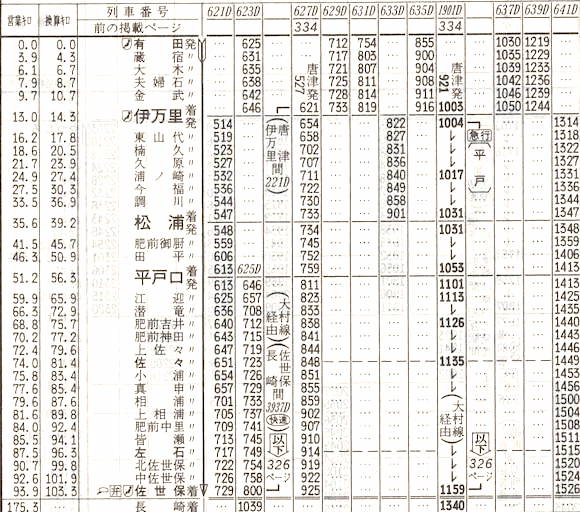 列 車 番 号 621D 623D 627D 629D 631D 633D 635D 1901D 637D 639D 641D
営業キロ 換算キロ 前の掲載ページ 334 334
0.0 0.0 有田発 … 625 712 754 … 855 1030 1219 …
3.9 4.3 蔵宿〃 … 631 717 803 … 900 1035 1229 …
6.1 6.7 大木〃 … 635 唐津発 721 807 … 904 唐津発 1039 1233 …
7.9 8.7 夫婦石〃 … 638 527 725 811 … 908 921 1042 1236 …
9.7 10.7 金武〃 … 642 728 814 … 911 1046 1240 …
13.0 14.3 伊万里着 … 646 621 733 819 … 916 1003 1050 1244 …
発 514 654 … … 822 … 1004 … … 1314
16.2 17.8 東山代〃 519 伊万里 唐津間 221D 658 … … 827 … 急行 … … 1318
18.6 20.5 楠久〃 523 702 … … 831 … 平戸 … … 1322
21.7 23.9 久原〃 527 707 … … 836 … … … 1327
24.9 27.4 浦ノ崎〃 532 711 … … 840 … 1017 … … 1331
27.5 30.3 今福〃 536 722 … … 849 … … … 1336
33.5 36.9 調川〃 544 730 … … 858 … … … 1344
35.6 39.2 松浦着 547 733 … … 901 … 1031 … … 1347
発 548 734 … … … … 1031 … … 1348
41.5 45.7 肥前御厨〃 559 745 … … … … … … 1359
46.3 50.9 田平〃 606 752 … … … … … … 1406
51.2 56.3 平戸口着 613 625D 759 … … … … 1053 … … 1413
発 613 646 811 … … … … 1101 … … 1413
59.9 65.9 江迎〃 625 657 823 … … … … 1113 … … 1425
66.3 72.9 潜竜〃 636 708 833 … … … … … … 1435
68.8 75.7 肥前吉井〃 640 712 838 … … … … 1126 … … 1440
70.2 77.2 肥前神田〃 643 715 841 … … … … … … 1443
72.4 79.6 上佐々〃 647 719 844 … … … … … … 1446
74.0 81.4 佐々〃 651 723 848 1135 1449
75.8 83.4 小浦〃 654 726 851 … … … … … … 1453
77.6 85.4 真申〃 657 729 855 … … … … … … 1456
79.6 87.6 相浦〃 701 733 859 … … … … … … 1500
81.6 89.8 上相浦〃 705 737 902 … … … … … … 1504
84.0 92.4 肥前中里〃 709 741 907 … … … … … … 1508
85.5 94.1 皆瀬〃 713 745 910 … … … … … … 1511
87.5 96.3 左石〃 717 749 914 … … … … … … 1515
90.7 99.8 北佐世保〃 722 754 919 … … … … … … 1520
92.6 101.9 中佐世保〃 726 758 922 … … … … … … 1524
93.9 103.3 弁 佐世保着 729 800 925 … … … … 1159 … … 1526
175.3 長崎着 … 1039 … … … … … 1340 … … …
(大村線経由)
(長崎 佐世保間 3937D 快速)
以下326ページ
(大村線経由)
以下326ページ